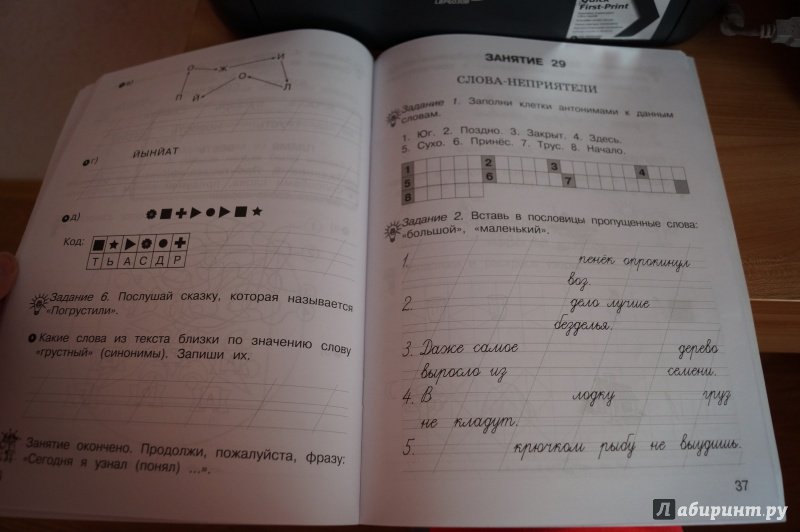 Quick
First-Print
в)
О Ж И
О
П Й Л
г) ЙЫНЙАТ
д)
Код:
Т Ь А С Д Р
Задание 6. Послушай сказку, которая называется
«Погрустили».
Какие слова из текста близки по значению слову
«грустный» (синонимы). Запиши их.
Занятие окончено. Продолжи, пожалуйста, фразу:
«Сегодня я узнал (понял) ...».
ЗАНЯТИЕ 29
СЛОВА-НЕПРИЯТЕЛИ
Задание 1. Заполни клетки антонимами к данным
словам.
1. Юг. 2. Поздно. 3. Закрыт. 4. Здесь.
5. Сухо. 6. Принёс. 7. Трус. 8. Начало.
1 2 3 4
5 6 7
8
Задание 2. Вставь в пословицы пропущенные слова:
«большой», «маленький».
1. пенёк опрокинул
воз.
2. дело лучше
безделья.
3. Даже самое дерево
выросло из семени.
4. В лодку груз
не кладут.
5. крючком рыбу не выудишь.
37
Лабиринт.ру